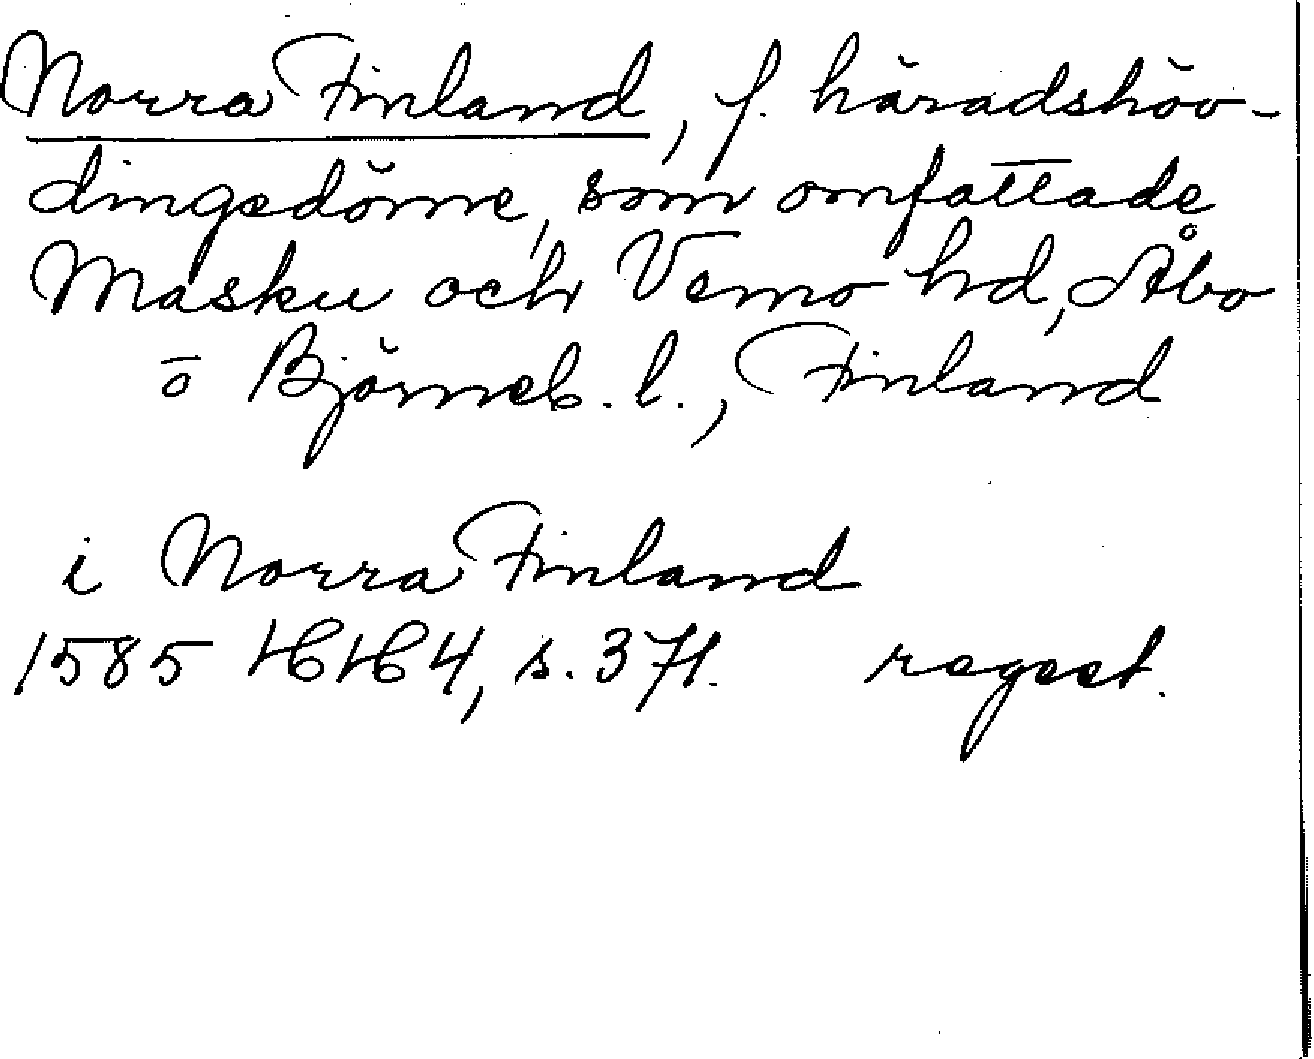 Norra Finland, f. häradshöv-
dingsdöme, som omfattade
Masku och Vemo hd, Åbo
o Björneb. l., Finland
i Norra Finland
1585 HH 4, s. 371. regest.